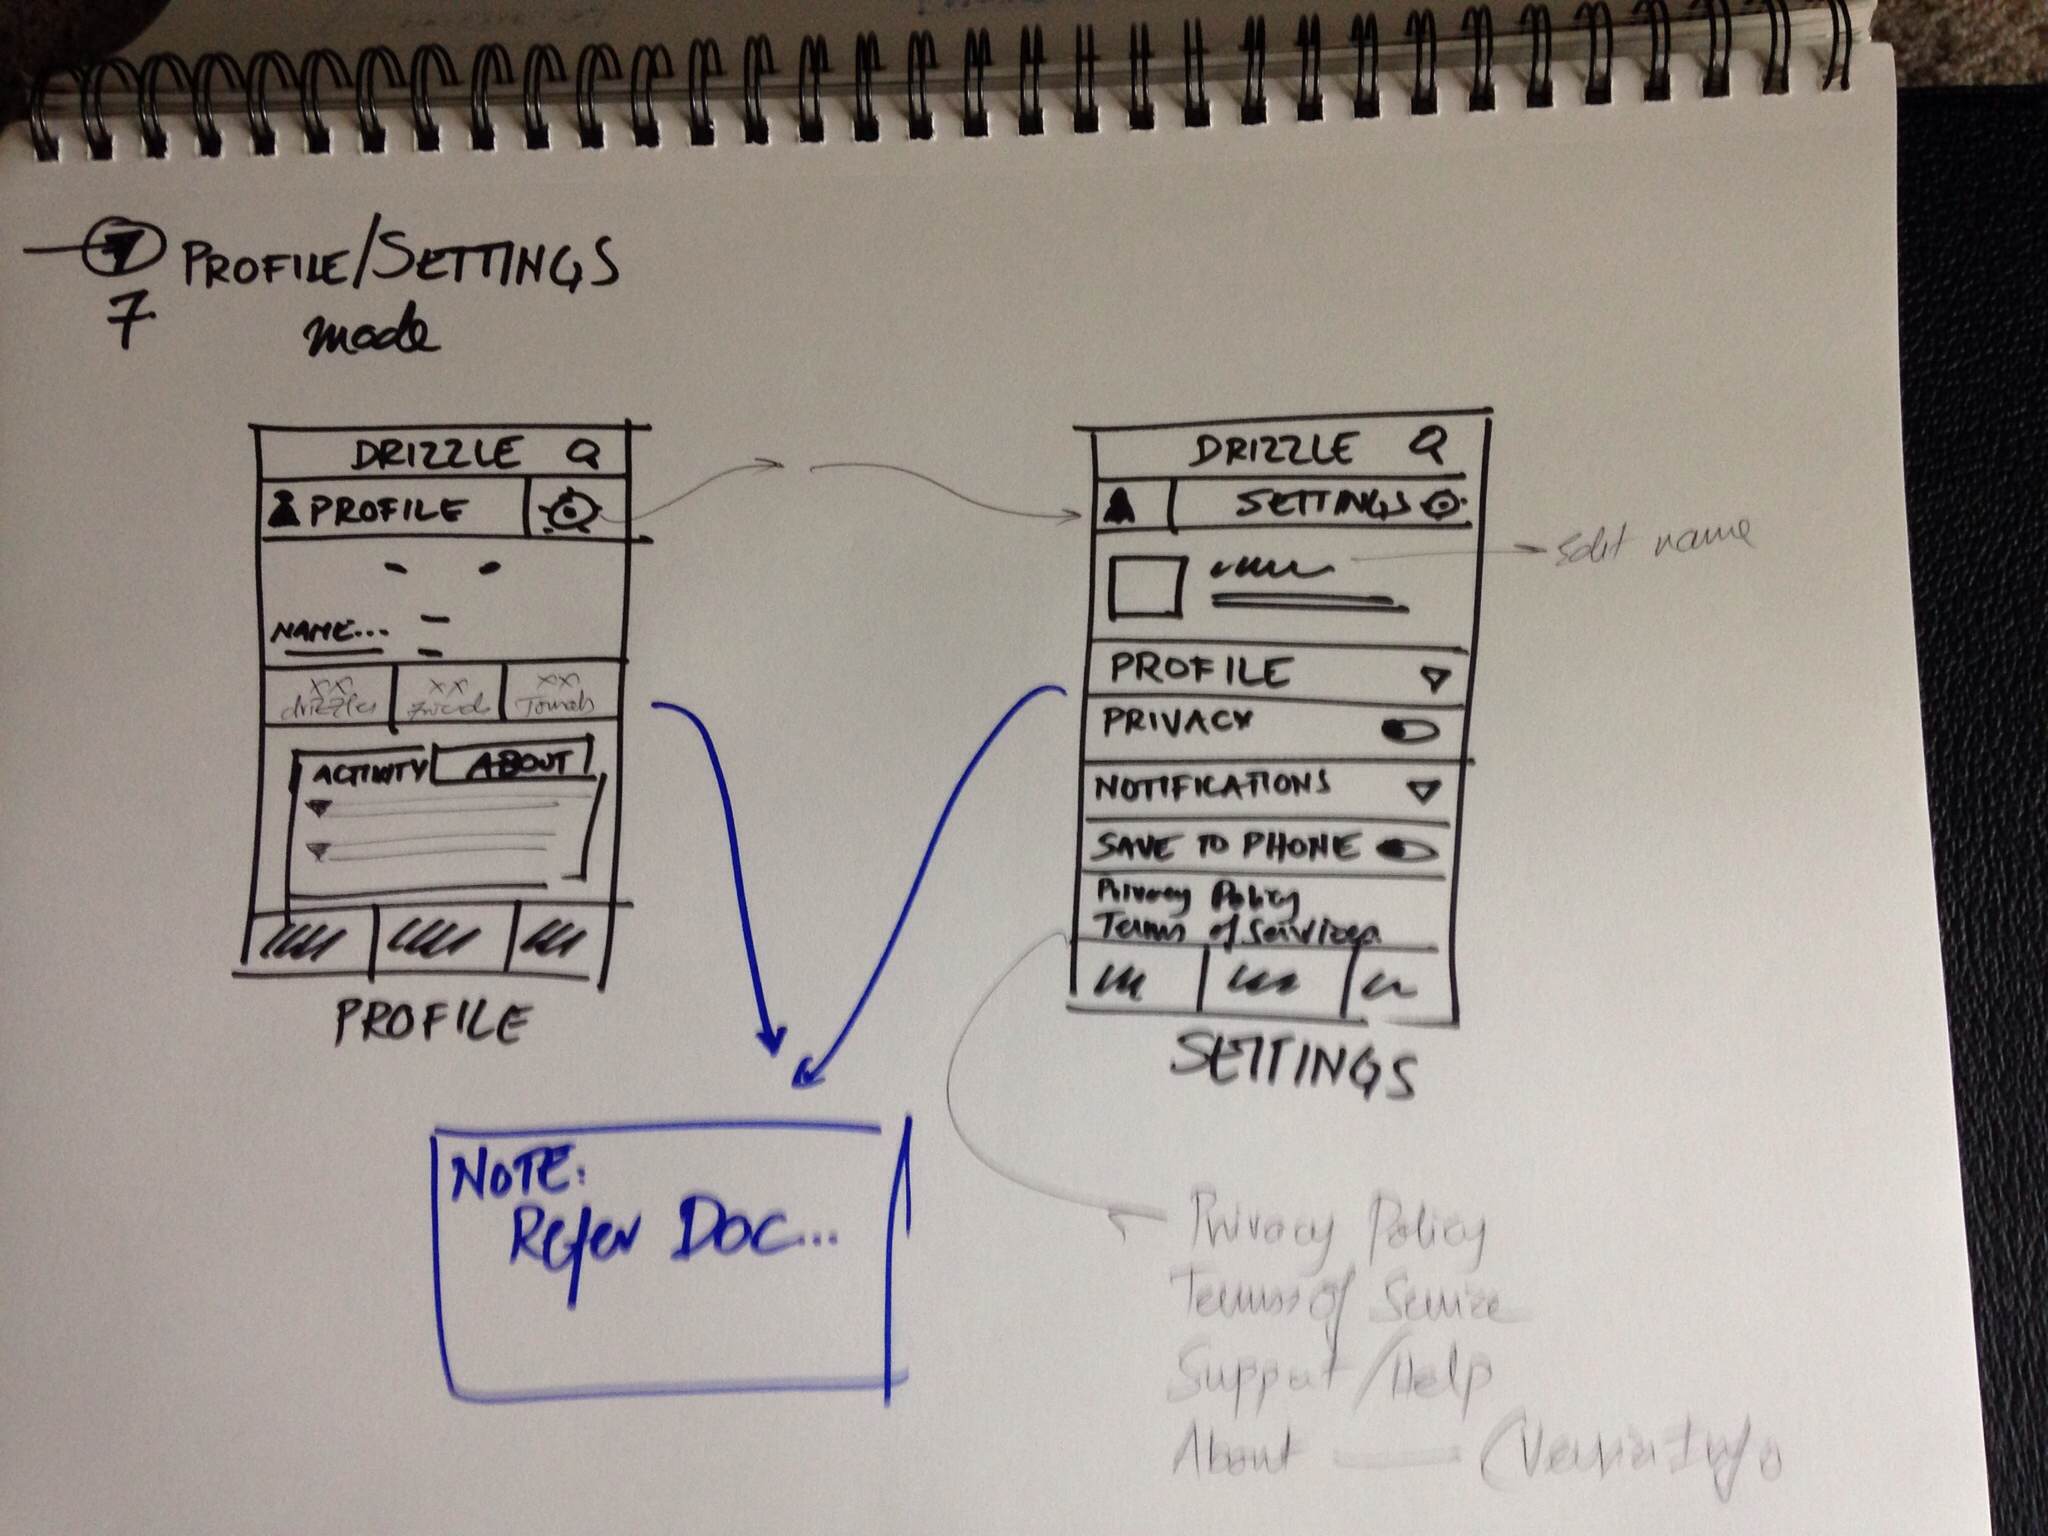 7 PROFILE/SETTINGS
mode
DRIZZLE
PROFILE
NAME...
xx xx xx
drizzles friends
ACTIVITY ABOUT
PROFILE
DRIZZLE
SETTINGS
Edit name
PROFILE
PRIVACY
NOTIFICATIONS
SAVE TO PHONE
Privacy Policy
Terms of Services
SETTINGS
NOTE:
Refer DOC...
Privacy Policy
Terms of Service
Support/Help
About (Version Info